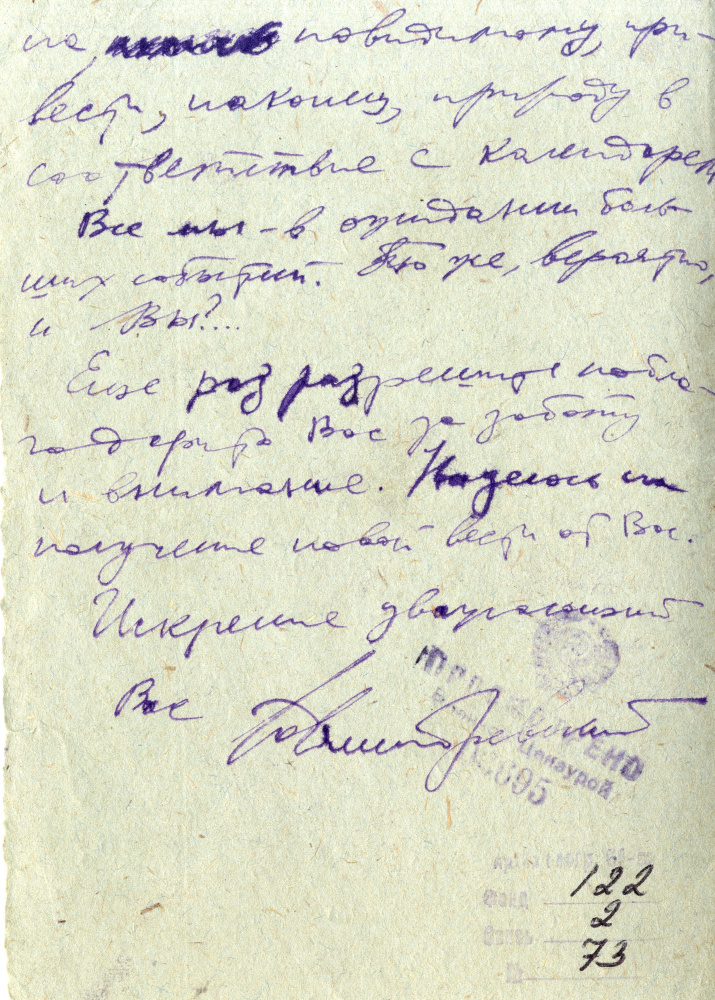 на, повидимому, при-
вести, наконец, природу в
соответствие с календарем
Все мы - в ожидании боль-
ших событий. То же, вероятно,
и Вы?...
Еще раз разрешите побла-
годарить Вас за заботу
и внимание. Надеюсь на
получение новой вести от Вас.
Искренне уважающий
Вас
Просмотрено
Военной Цензурой
695
122
2
73